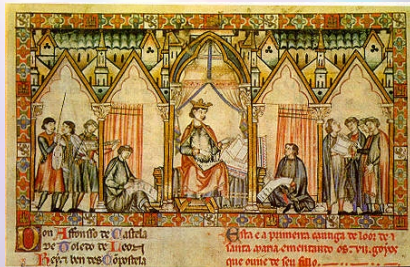 Don Affonso de Castela
de Toledo de Leon
Rey e ben des Conpostela
Esta e a primeira cantiga de loor de
santa maria ementando os .vii. goyos
que ouue de seu fillo.